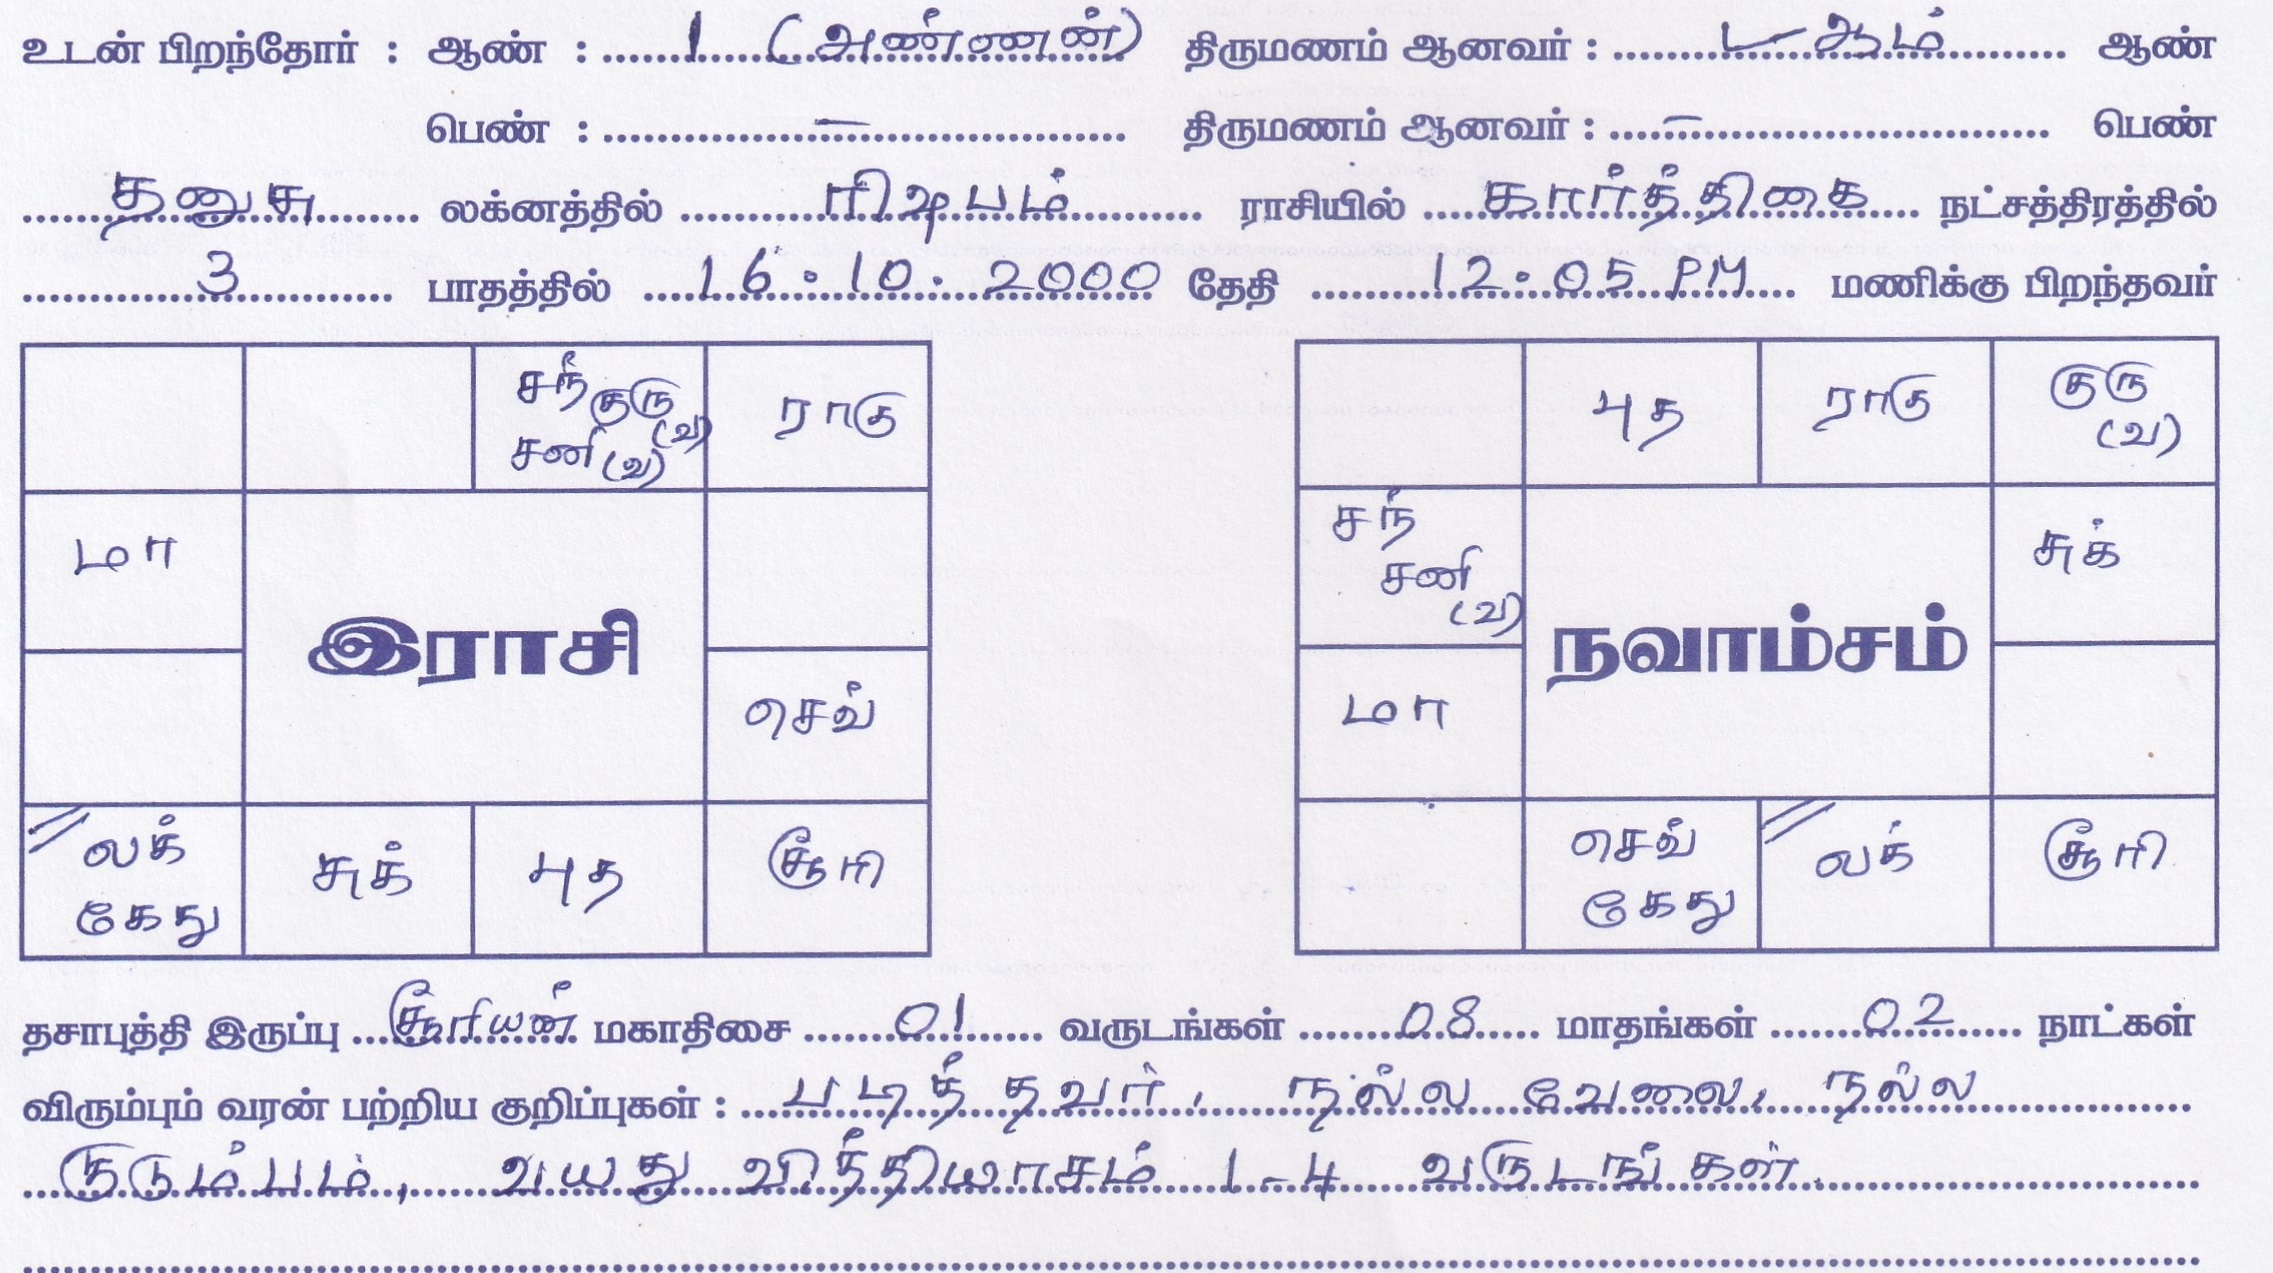 உடன் பிறந்தோர் : ஆண் : ......1...(அண்ணன்) திருமணம் ஆனவர் : ............ஆம்............ ஆண்
பெண் : ............–............ திருமணம் ஆனவர் : ......–............ பெண்
......தனுசு...... லக்னத்தில் ......ரிஷபம்...... ராசியில் ......கார்த்திகை...... நட்சத்திரத்தில்
......3...... பாதத்தில் ......16.10.2000 தேதி ......12.05 PM...... மணிக்கு பிறந்தவர்
சந் குரு (வ) சனி (வ) ராகு
மா
இராசி
செவ்
லக் கேது சுக் புத சூரி
புத ராகு குரு (வ)
சந் சனி (வ) சுக்
நவாம்சம்
மா
செவ் கேது லக் சூரி
தசாபுத்தி இருப்பு ...சூரியன் மகாதிசை ......01...... வருடங்கள் ......08...... மாதங்கள் ......02...... நாட்கள்
விரும்பும் வரன் பற்றிய குறிப்புகள் : ...படித்தவர், நல்ல வேலை, நல்ல
குடும்பம், வயது வித்தியாசம் 1-4 வருடங்கள்.